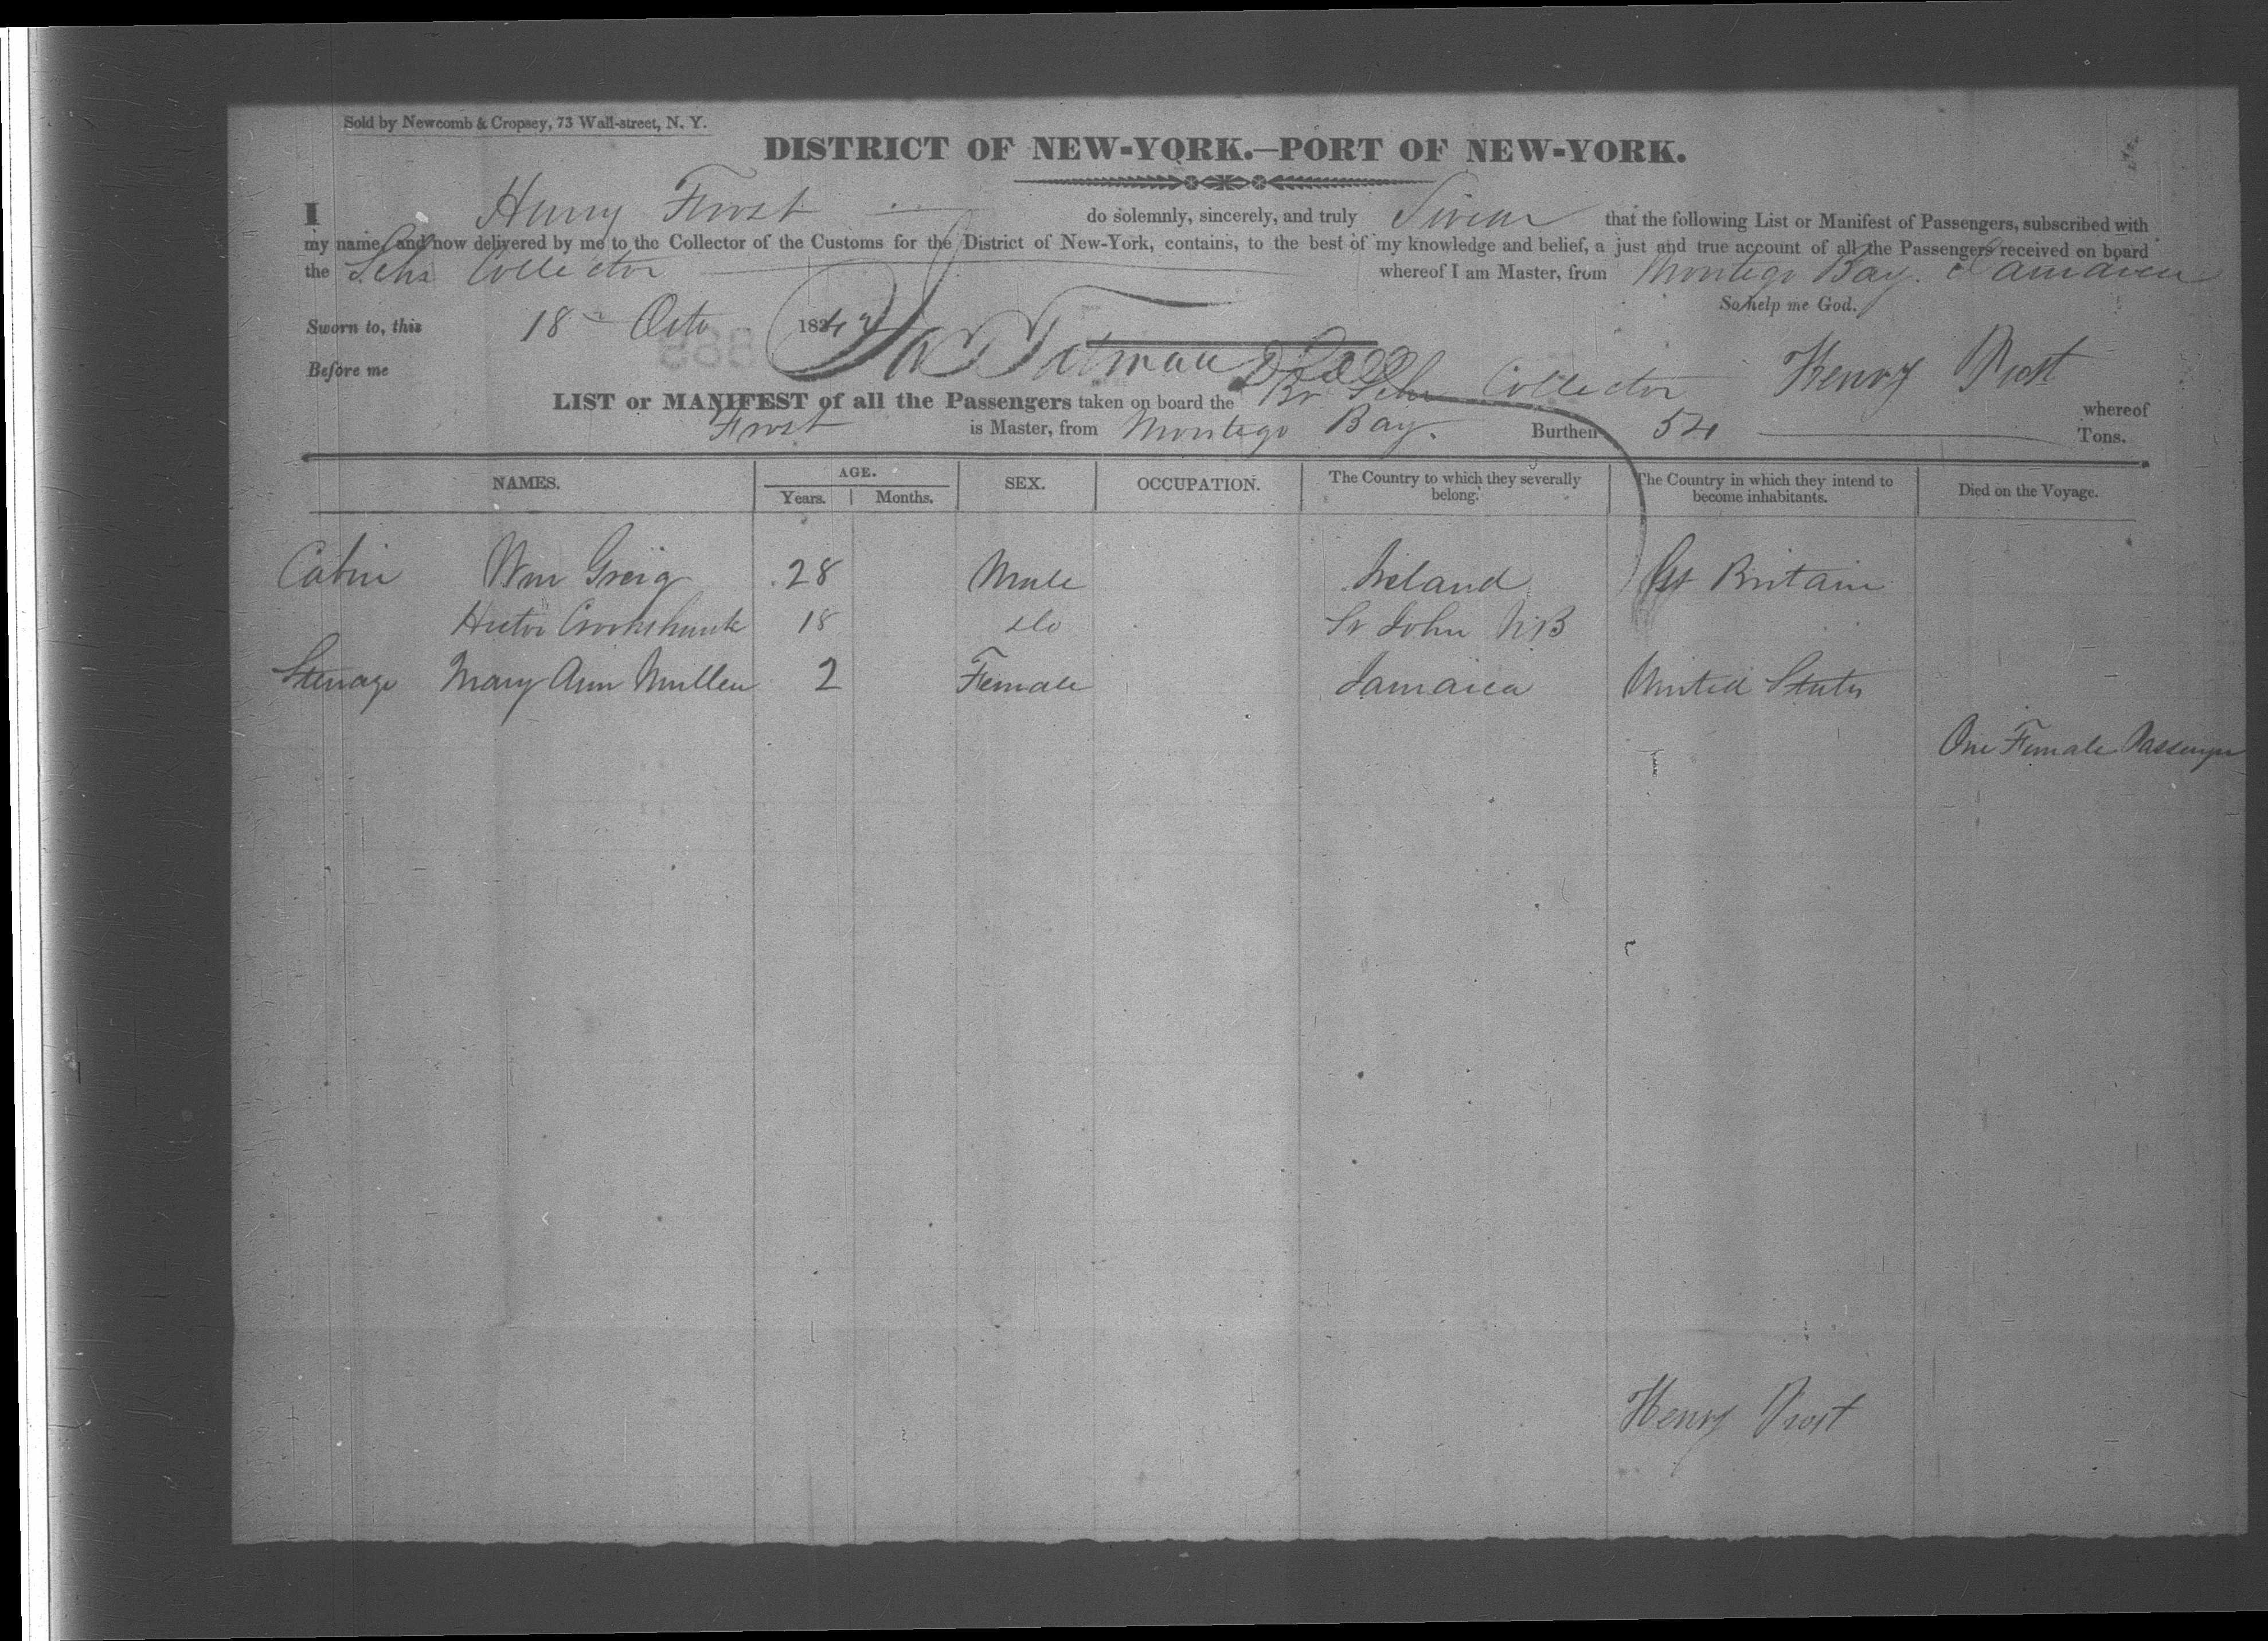 Sold by Newcomb & Cropsey, 73 Wall-street, N. Y.
DISTRICT OF NEW-YORK.—PORT OF NEW-YORK.
I Henry Frost do solemnly, sincerely, and truly Swear that the following List or Manifest of Passengers, subscribed with
my name, and now delivered by me to the Collector of the Customs for the District of New-York, contains, to the best of my knowledge and belief, a just and true account of all the Passengers received on board
the Schr Collector whereof I am Master, from Montego Bay. Jamaica
So help me God.
Sworn to, this 18 Octo 184
Before me Henry Frost
LIST or MANIFEST of all the Passengers taken on board the Br Schr Collector whereof
Frost is Master, from Montego Bay. Burthen 54 Tons.
NAMES. AGE. SEX. OCCUPATION. The Country to which they severally belong. The Country in which they intend to become inhabitants. Died on the Voyage.
Years. Months.
Cabin Wm Greig 28 Male Ireland Gt Britain
Hector Crookshank 18 do St John NB
Steerage Mary Ann Mullen 2 Female Jamaica United States
One Female Passenger
Henry Frost